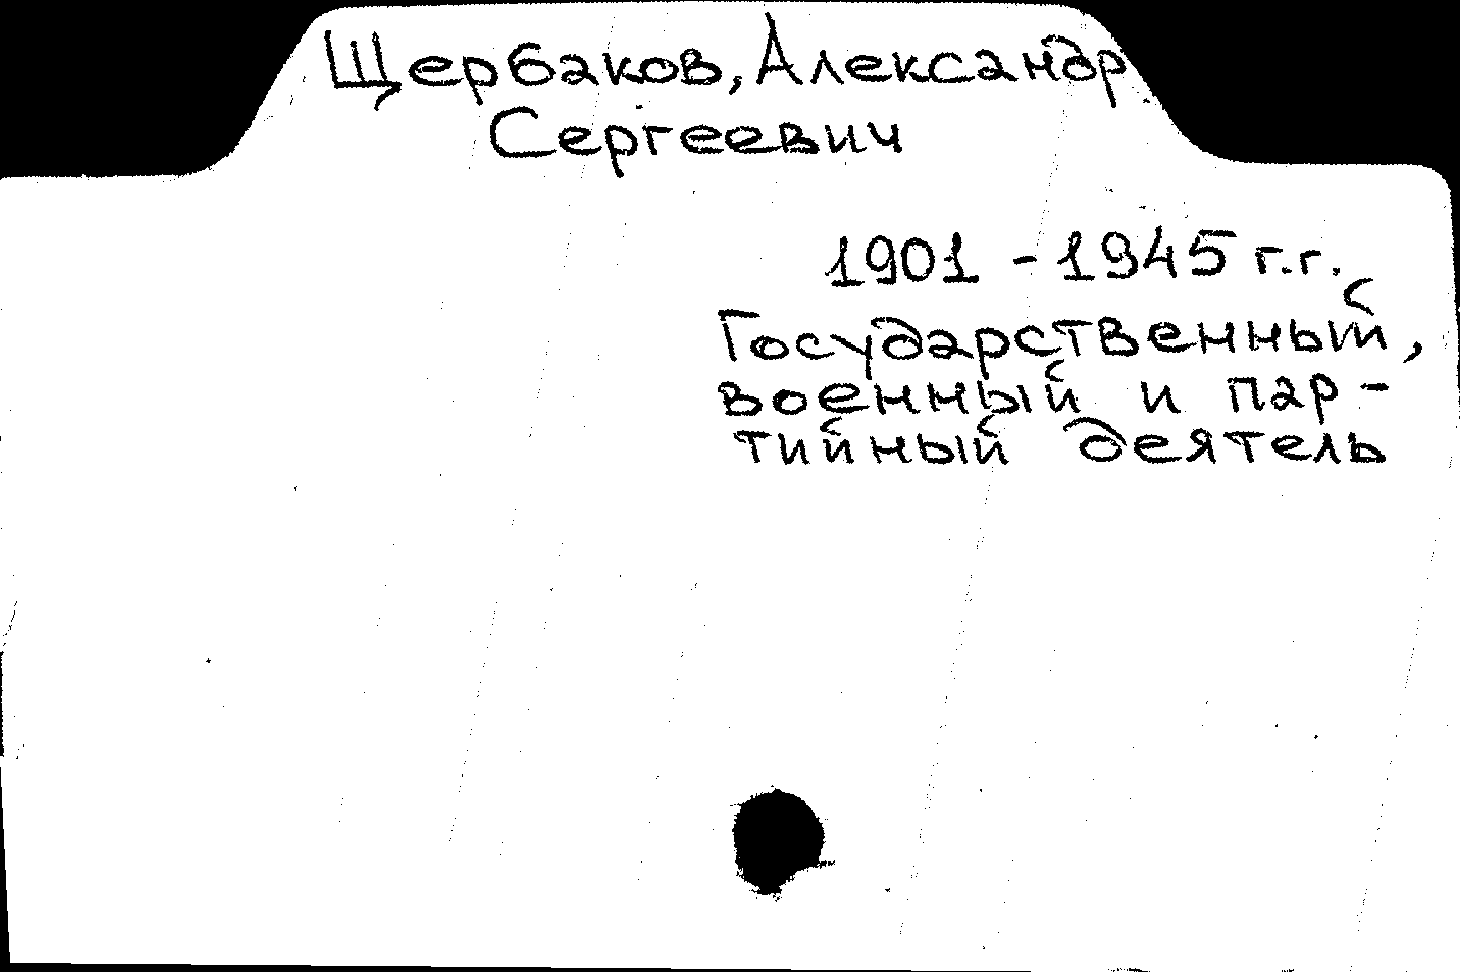 Щербаков, Александр
Сергеевич
1901 - 1945 г.г.
Государственный,
военный и пар-
тийный деятель